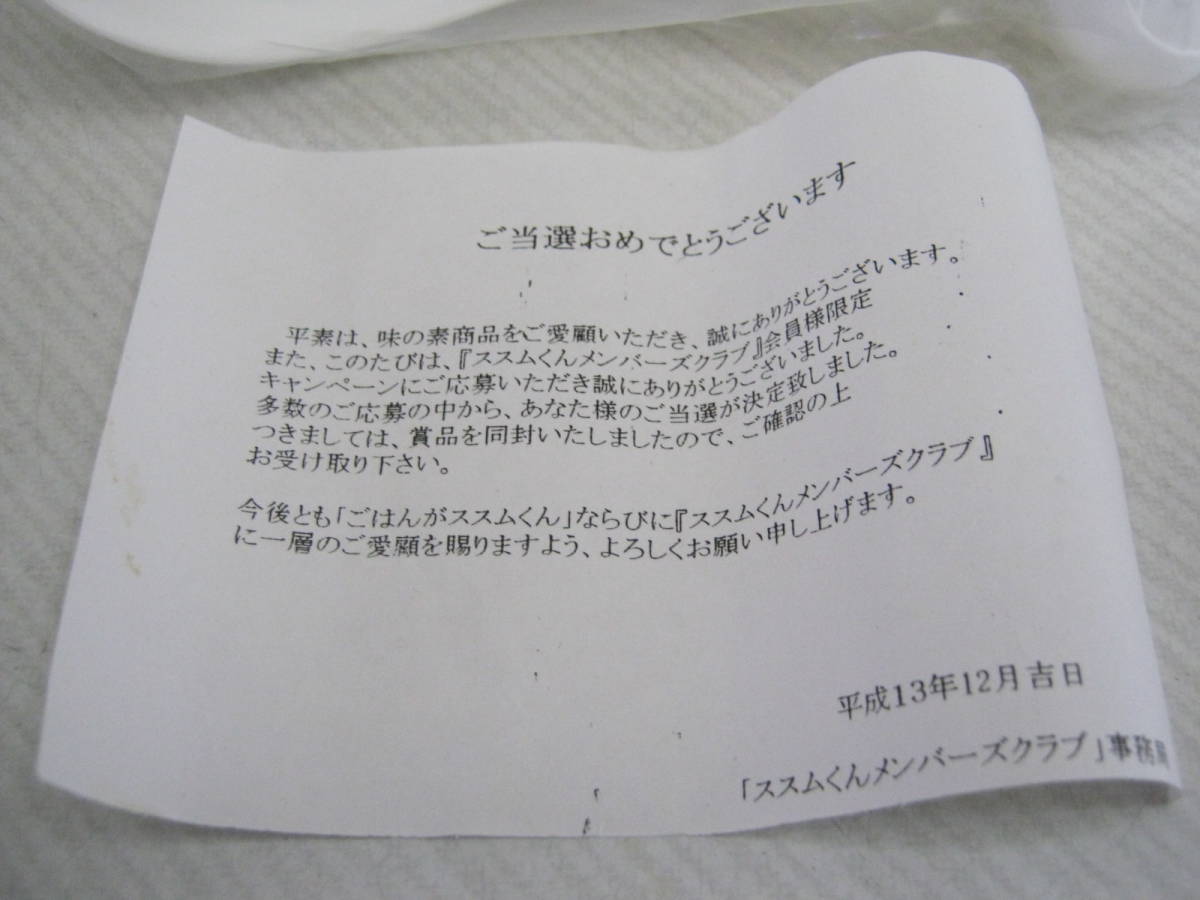 ご当選おめでとうございます
平素は、味の素商品をご愛顧いただき、誠にありがとうございます。
また、このたびは、『ススムくんメンバーズクラブ』会員様限定
キャンペーンにご応募いただき誠にありがとうございました。
多数のご応募の中から、あなた様のご当選が決定致しました。
つきましては、賞品を同封いたしましたので、ご確認の上
お受け取り下さい。
今後とも「ごはんがススムくん」ならびに『ススムくんメンバーズクラブ』
に一層のご愛顧を賜りますよう、よろしくお願い申し上げます。
平成13年12月吉日
「ススムくんメンバーズクラブ」事務局